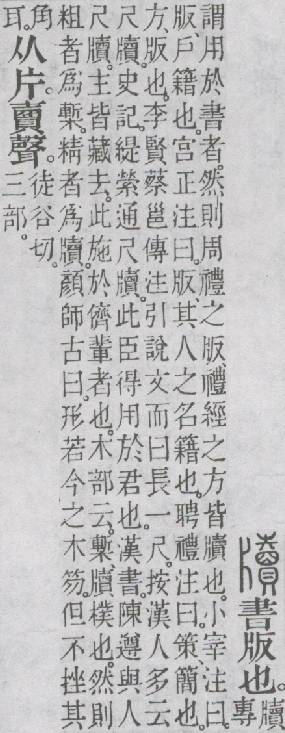 牘書版也。牘專
謂用於書者。然則周禮之版、禮經之方皆牘也。小宰注曰。
版、戶籍也。宮正注曰。版、其人之名籍也。聘禮注曰。策、簡也。
方、版也。李賢蔡邕傳注引說文而曰長一尺。按漢人多云
尺牘。史記緹縈通尺牘。此臣得用於君也。漢書陳遵與人
尺牘。主皆藏去。此施於儕輩者也。木部云。槧、牘樸也。然則
粗者爲槧。精者爲牘。顏師古曰。形若今之木笏。但不挫其
角耳。从片。賣聲。徒谷切。三部。